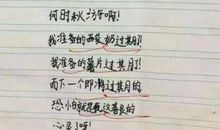 何时秋访啊!
我准备的西装奶过其月!
我准备的薯片过其月!
而下一个即冲过其月的
恐怕就是我这善良的
心灵了呀!